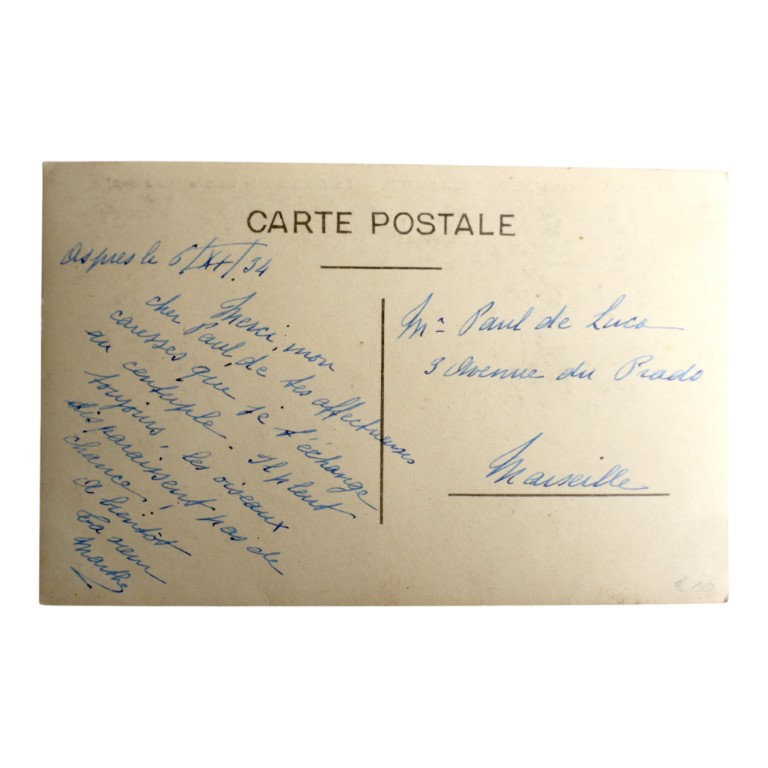 CARTE POSTALE
Aspres le 6/XI/34
Merci, mon
cher Paul de tes affectueuses
caresses que je t'échange
au centuple. Il pleut
toujours, les oiseaux
disparaissent pas de
chance !
A bientôt
Ta sœur
Marthe
Mr Paul de Luca
3 Avenue du Prado
Marseille